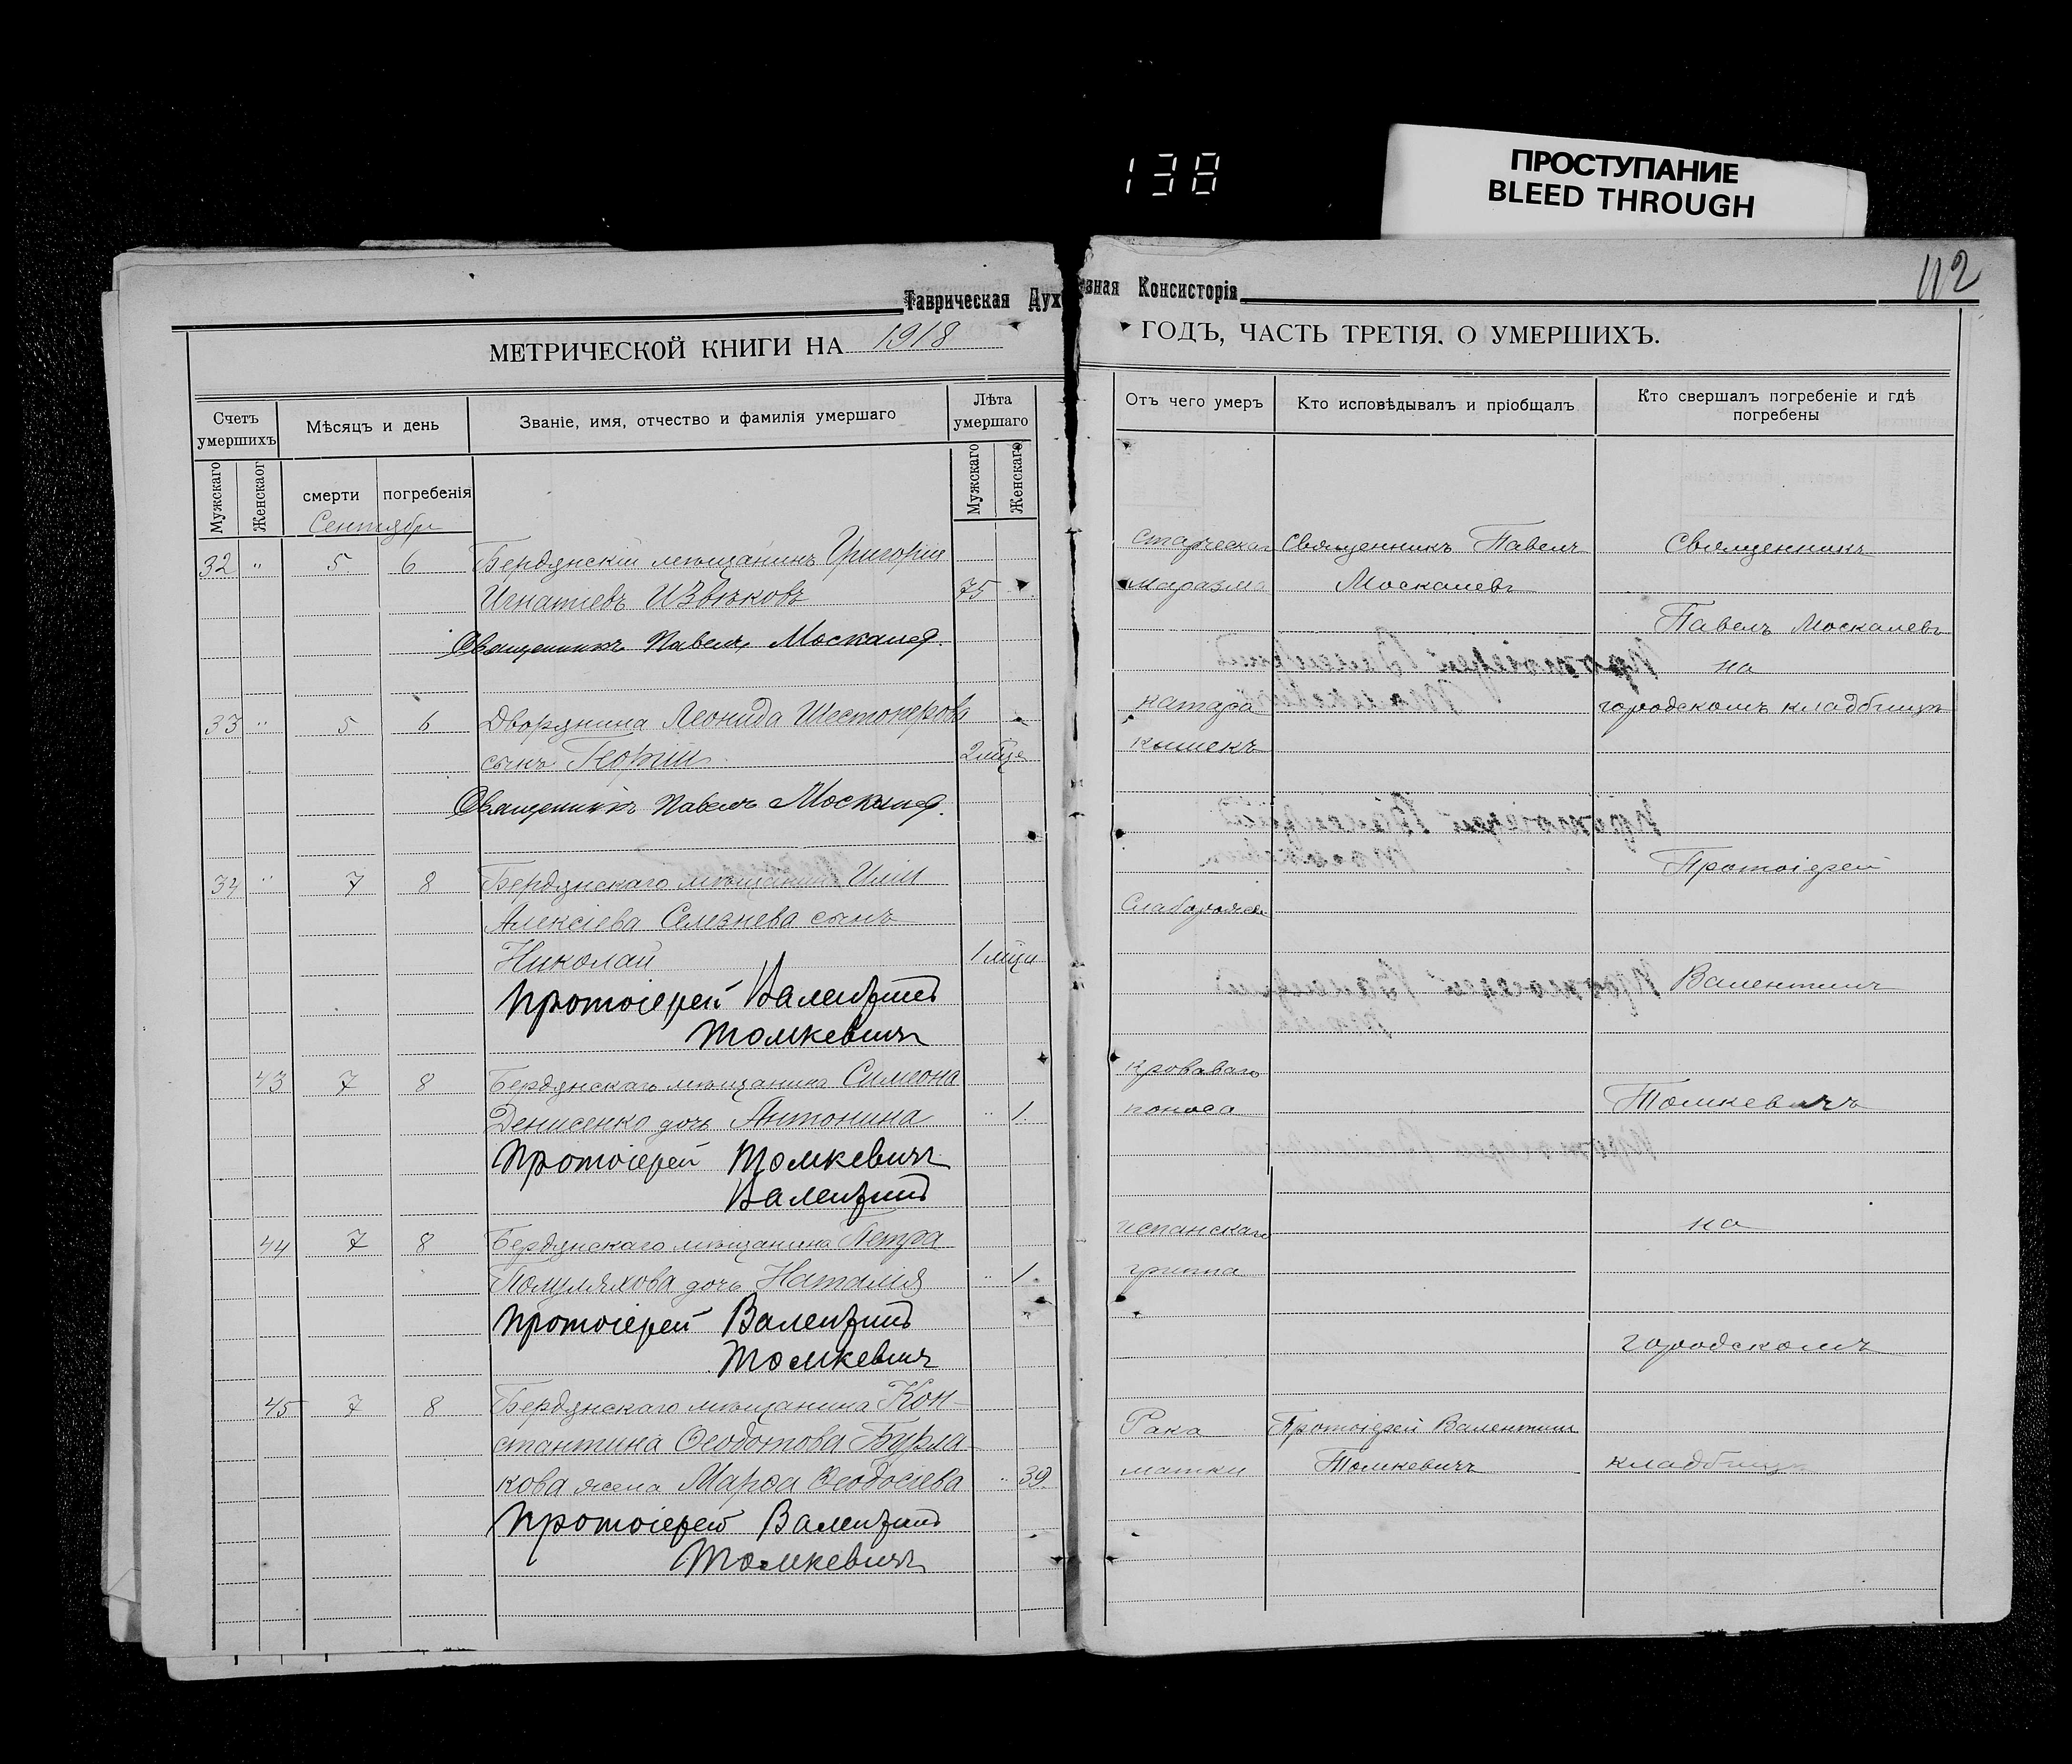 138
ПРОСТУПАНИЕ
BLEED THROUGH
112
Таврическая Духовная Консисторія
МЕТРИЧЕСКОЙ КНИГИ НА 1918 ГОДЪ, ЧАСТЬ ТРЕТІЯ, О УМЕРШИХЪ.
Счетъ умершихъ
Мѣсяцъ и день
Званіе, имя, отчество и фамилія умершаго
Лѣта умершаго
Отъ чего умеръ
Кто исповѣдывалъ и пріобщалъ
Кто свершалъ погребеніе и гдѣ погребены
Мужскаго
Женскаог
смерти
погребенія
Мужскаго
Женскаго
Сентябрь
32 " 5 6 Бердянскій мѣщанинъ Григорій
Игнатіевъ Извѣковъ 75
Священникъ Павелъ Москалев.
33 " 5 6 Дворянина Леонида Шестоперова
сынъ Георгій 2 мѣс.
Священникъ Павелъ Москалев.
34 " 7 8 Бердянскаго мѣщанина Иліи
Алексіева Селезнева сынъ
Николай 1 мѣц.
Протоіерей Валентинъ
Томкевичъ
43 7 8 Бердянскаго мѣщанина Симеона
Денисенко дочь Антонина " 1.
Протоіерей Томкевичъ
Валентинъ
44 7 8 Бердянскаго мѣщанина Петра
Полуляхова дочь Наталія " 1.
Протоіерей Валентинъ
Томкевичъ
45 7 8 Бердянскаго мѣщанина Кон-
стантина Ѳеодотова Бурла-
кова жена Марѳа Ѳеодосіева " 39.
Протоіерей Валентинъ
Томкевичъ
Старческаго Священникъ Павелъ Священникъ
маразма Москалевъ
Павелъ Москалевъ
на
катара городскомъ кладбищѣ
кишекъ
Протоіерей
Слаборожд.
Валентинъ
Кроваваго
поноса Томкевичъ
испанскаго на
гриппа
городскомъ
Рака Протоіерей Валентинъ
матки Томкевичъ кладбищѣ